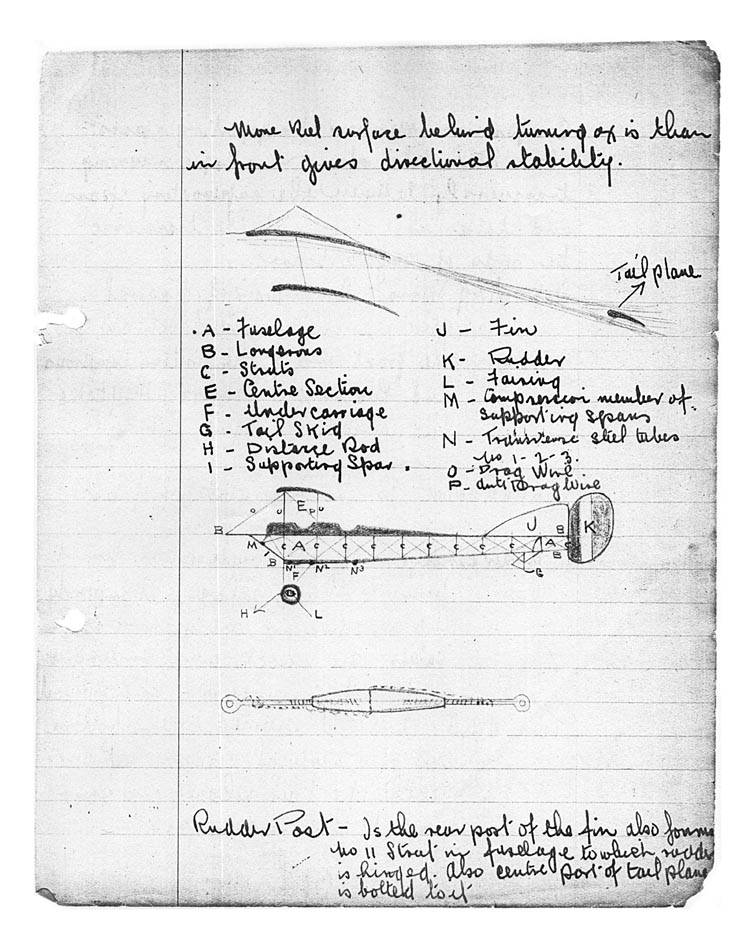 More keel surface behind turning axis than
in front gives directional stability.
Tail plane
A - Fuselage
B - Longerons
C - Struts
E - Centre Section
F - Undercarriage
G - Tail Skid
H - Distance Rod
I - Supporting Spar.
J - Fin
K - Rudder
L - Fairing
M - Compression member of
supporting spars
N - Transverse steel tubes
no 1-2-3.
O - Drag Wire
P - Anti Drag Wire
E
O
P
B
J
B
K
M
A
C C C C C C C C C
A
C
B
B
N1
N2
N3
F
G
H
L
Rudder Post - Is the rear post of the fin also forms
no 11 Strut in fuselage to which rudder
is hinged. Also centre part of tail plane
is bolted to it